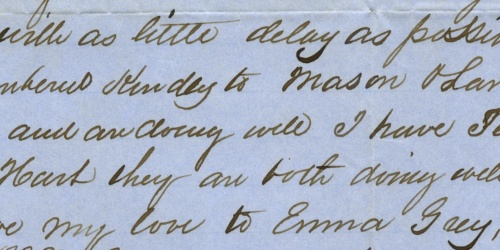 with as little delay as possi
mbered Kindly to Mason & Lan
and are doing well I have Ta
Hart they are both doing well
ve my love to Emma Grey